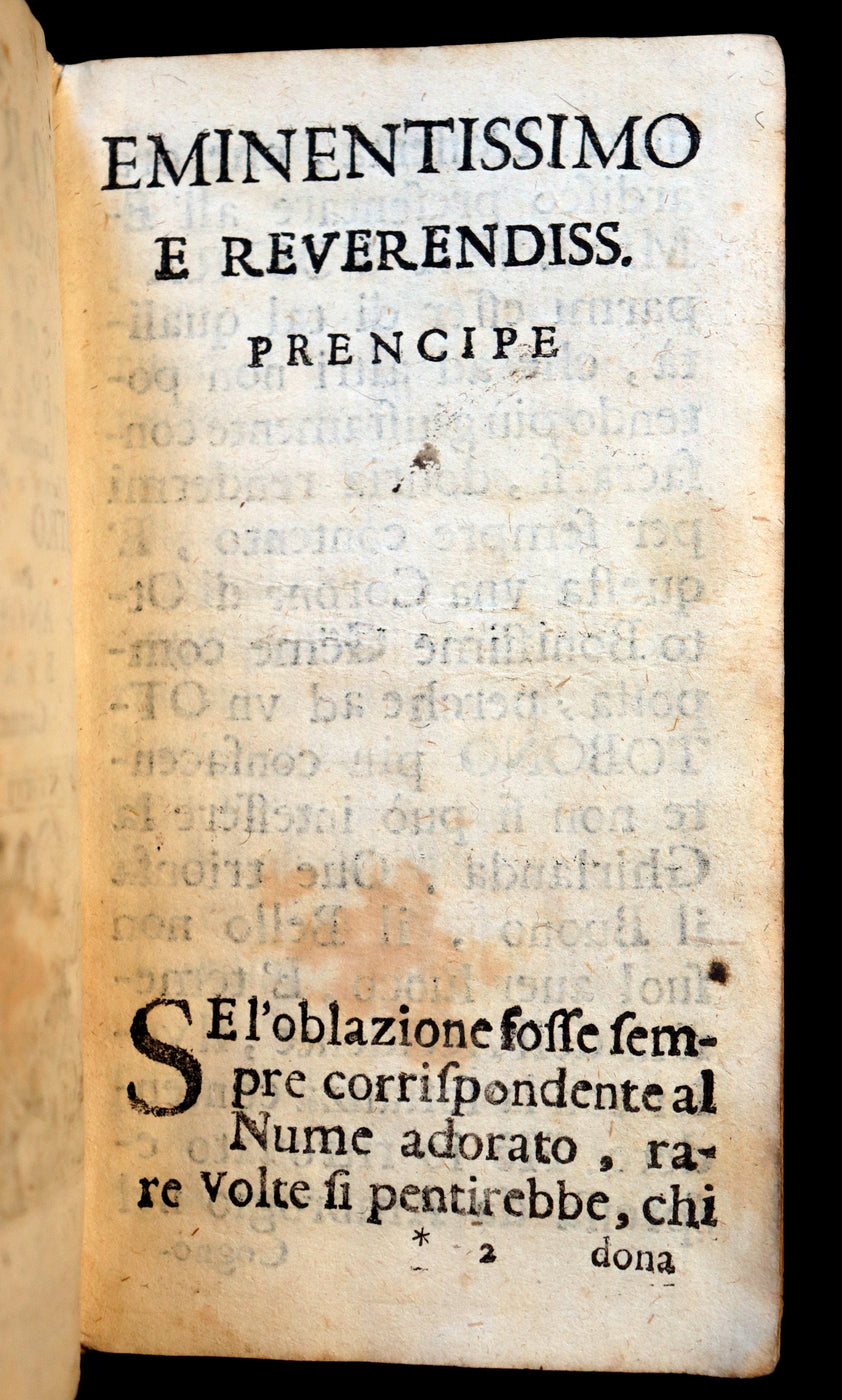 EMINENTISSIMO
E REVERENDISS.
PRENCIPE
SE l'oblazione foſſe ſem-
pre corriſpondente al
Nume adorato , ra-
re volte ſi pentirebbe, chi
* 2 dona